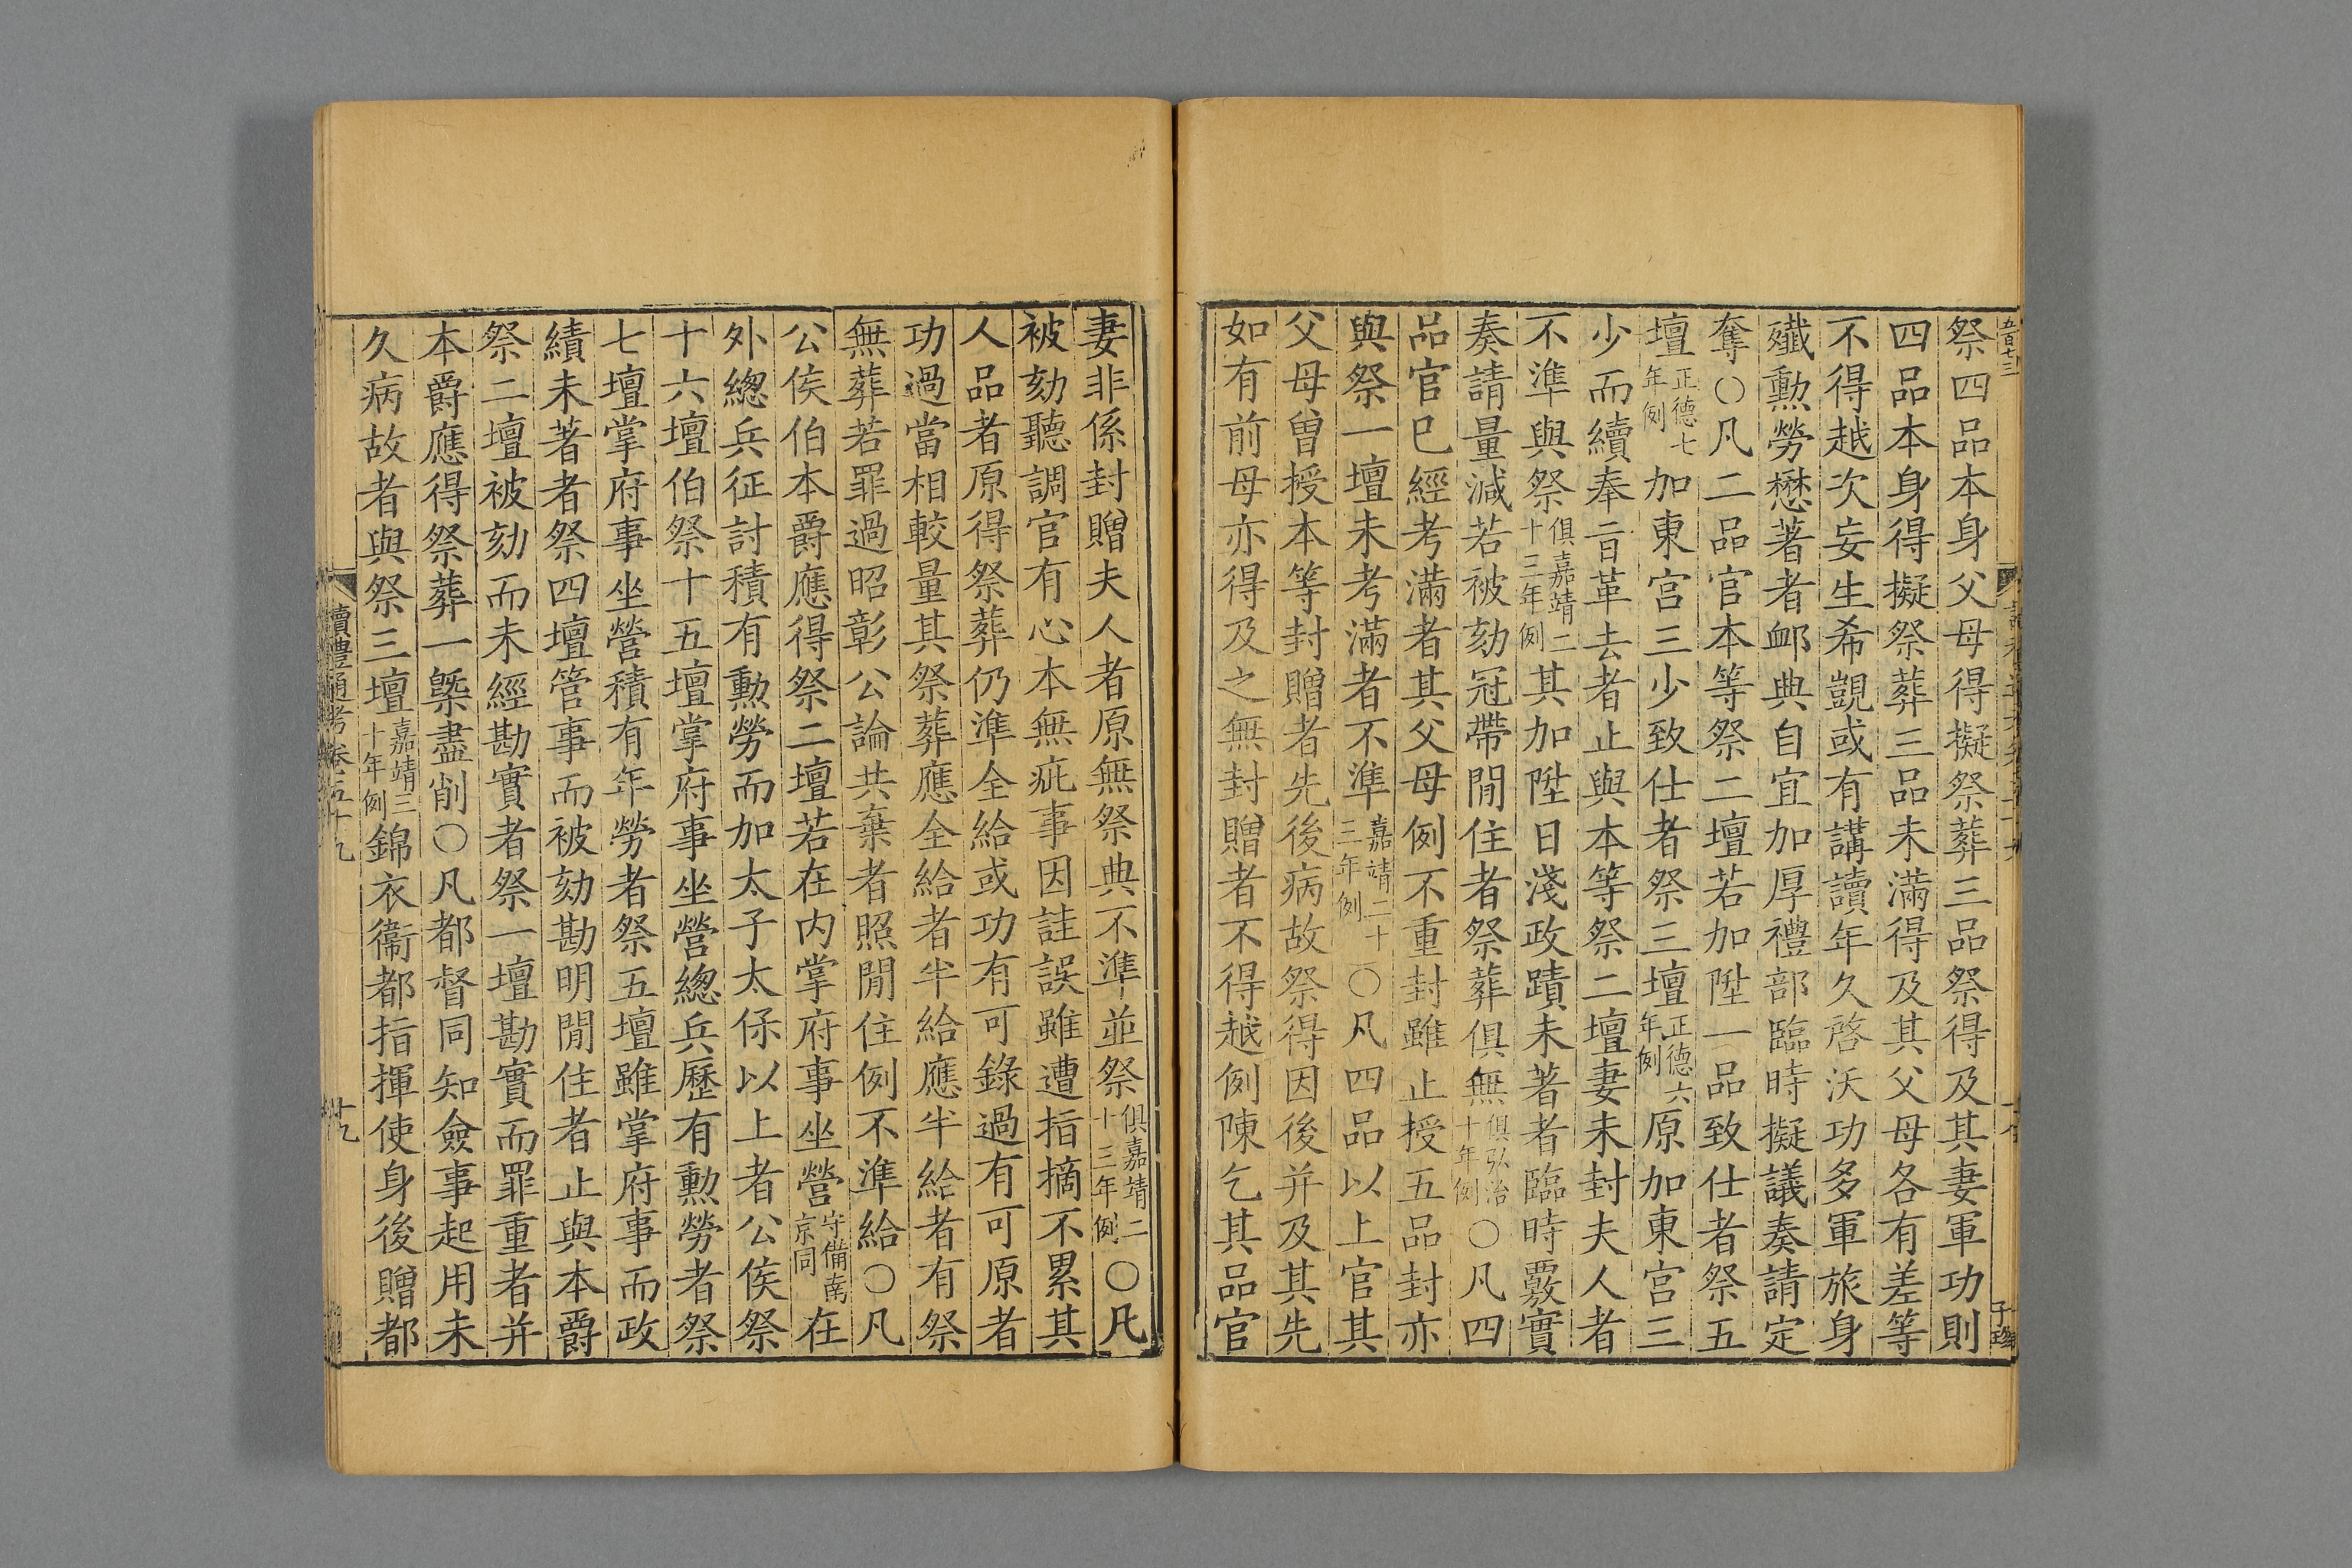 祭四品本身父母得擬祭葬三品祭得及其妻軍功則
四品本身得擬祭葬三品未滿得及其父母各有差等
不得越次妄生希覬或有講讀年久啓沃功多軍旅身
殲勳勞懋著者卹典自宜加厚禮部臨時擬議奏請定
奪○凡二品官本等祭二壇若加陞一品致仕者祭五
壇正德七年例加東宮三少致仕者祭三壇正德六年例原加東宮三
少而續奉旨革去者止與本等祭二壇妻未封夫人者
不準與祭俱嘉靖二十三年例其加陞日淺政蹟未著者臨時覈實
奏請量減若被劾冠帶閒住者祭葬俱無俱弘治十年例○凡四
品官已經考滿者其父母例不重封雖止授五品封亦
與祭一壇未考滿者不準嘉靖二十三年例○凡四品以上官其
父母曾授本等封贈者先後病故祭得因後并及其先
如有前母亦得及之無封贈者不得越例陳乞其品官
妻非係封贈夫人者原無祭典不準並祭俱嘉靖二十三年例○凡
被劾聽調官有心本無疵事因詿誤雖遭指摘不累其
人品者原得祭葬仍準全給或功有可錄過有可原者
功過當相較量其祭葬應全給者半給應半給者有祭
無葬若罪過昭彰公論共棄者照閒住例不準給○凡
公侯伯本爵應得祭二壇若在内掌府事坐營守備南京同在
外總兵征討積有勳勞而加太子太保以上者公侯祭
十六壇伯祭十五壇掌府事坐營總兵歷有勳勞者祭
七壇掌府事坐營積有年勞者祭五壇雖掌府事而政
績未著者祭四壇管事而被劾勘明閒住者止與本爵
祭二壇被劾而未經勘實者祭一壇勘實而罪重者并
本爵應得祭葬一槩盡削○凡都督同知僉事起用未
久病故者與祭三壇嘉靖三十年例錦衣衞都指揮使身後贈都
讀禮通考卷五十九
十九